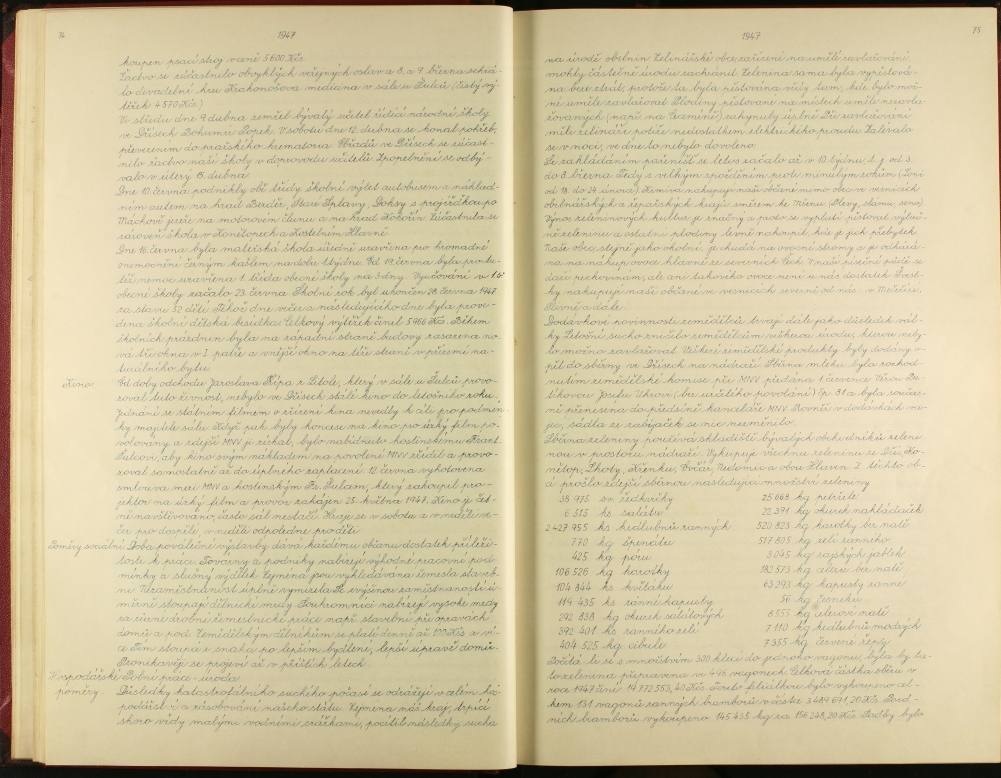 74
1947
koupen psací stroj v ceně 5600 Kčs.
Žactvo se zúčastnilo obvyklých veřejných oslav a 8. a 9. března sehrá-
lo divadelní hru Krakonošova medicina v sále u Šulců (čistý vý-
těžek 4570 Kčs.)
Ve středu dne 9. dubna zemřel bývalý učitel řídící národní školy
ve Dřísech Bohumír Popek. V sobotu dne 12. dubna se konal pohřeb,
převezením do pražského krematoria. Obřadů ve Dřísech se zúčast-
nilo žactvo naší školy v doprovodu učitelů. Zpopelnění se odbý-
valo v úterý 15. dubna.
Dne 10. června podnikly obě třídy školní výlet autobusem a náklad-
ním autem na hrad Bezděz, Staré Splavy, Doksy s projížďkou po
Máchově jezeře na motorovém člunu a na hrad Kokořín. Zúčastnila se
zároveň škola v Konětopech a Kostelním Hlavně.
Dne 16. června byla mateřská škola úředně uzavřena pro hromadné
onemocnění černým kašlem na dobu 1 týdne. Od 19. června byla pro tu-
též nemoc uzavřena 1. třída obecné školy na 3 dny. Vyučování v 1. tř.
obecné školy začalo 23. června. Školní rok byl ukončen 28. června 1947
za stavu 52 dětí. Téhož dne večer a následujícího dne byla prove-
dena školní dětská besídka. Celkový výtěžek činil 5966 Kčs. Během
školních prázdnin byla na západní straně budovy zasazena no-
vá tři okna v I. patře a vnější okno na téže straně v přízemí na-
turálního bytu.
Kino:
Od doby odchodu Jaroslava Řípa z Létole, který v sále u Šulců provo-
zoval tuto živnost, nebylo ve Dřísech stálé kino do letošního roku.
Jednání se státním filmem o zřízení kina nevedly k cíli pro podmín-
ky majitele sálu. Když pak byly koncese na kino pro úzký film po-
volovány a zdejší MNV ji získal, bylo nabídnuto hostinskému Frant.
Šulcovi, aby kino svým nákladem na povolení MNV zřídil a provo-
zoval samostatně až do úplného zaplacení. 12. června vyhotovena
smlouva mezi MNV a hostinským Fr. Šulcem, který zakoupil pro-
jektor na úzký film a provoz zahájen 25. května 1947. Kino je čet-
ně navštěvováno, často sál nestačí. Hraje se v sobotu a v neděli ve-
čer pro dospělé, v neděli odpoledne pro děti.
Poměry sociální
Doba poválečné výstavby dává každému občanu dostatek příleži-
tosti k práci. Továrny a podniky nabízejí výhodné pracovní pod-
mínky a slušný výdělek. Zejména jsou vyhledávána řemesla staveb-
ní. Nezaměstnanost úplně vymizela. Se zvýšenou zaměstnaností ú-
měrně stoupají dělnické mzdy. Soukromníci nabízejí vysoké mzdy
za různé drobné řemeslnické práce např. stavební při opravách
domů a pod. Zemědělským dělníkům se platí denně až 100 Kčs a ví-
ce. Tím stoupá i snaha po lepším bydlení, lepší úpravě domů.
Pronikavěji se projeví až v příštích letech.
Hospodářské poměry.
Polní práce - úroda.
Důsledky katastrofálního suchého počasí se odrážejí v celém ho-
spodářství a zásobování našeho státu. Zejména náš kraj, trpící
skoro vždy malými vodními srážkami, pocítil následky sucha
75
1947
na úrodě obilnin. Zelinářské obce zařízené na umělé zavlažování
mohly částečně úrodu zachránit. Zelenina sama byla vypěstová-
na bez ztrát, protože ta byla pěstována vždy tam, kde bylo mož-
no uměle zavlažovat. Plodiny pěstované na místech uměle nezavla-
žovaných (např. na Cecemíně) zahynuly úplně. Při zavlažování
měli zelináři potíže nedostatkem elektrického proudu. Zalévalo
se v noci, ve dne to nebylo dovoleno.
Se zakládáním pařenišť se letos začalo až v 10. týdnu t. j. od 3.
do 8. března. Tedy s velkým zpožděním proti minulým rokům (loni
od 18. do 24. února). Krmiva nakupují naši občané mimo obec ve vesnicích
obilnářských a řepařských krajů směrem ke Mělníku (plevy, sláma, seno).
Výnos zeleninových kultur je značný a proto se vyplatí pěstovat výluč-
ně zeleninu a ostatní plodiny levně nakoupit, kde je jich přebytek.
Naše obec, stejně jako okolní, je chudá na ovocné stromy a je odkázá-
na na nákup ovoce hlavně ze severních Čech. V naší písčité půdě se
daří peckovinám, ale ani takového ovoce není u nás dostatek. Švest-
ky nakupují naši občané ve vesnicích severně od nás: v Mečeříži,
Pěčičce a dále.
Dodávkové povinnosti zemědělců trvají dále jako důsledek vál-
ky. Letošní sucho znížilo zemědělcům veškerou úrodu, kterou neby-
lo možno zavlažovat. Veškeré zemědělské produkty byly dodány o-
pět do sběrny ve Dřísech na nádraží. Sběrna mléka byla rozhod-
nutím zemědělské komise při MNV předána 1. července Věrou Be-
líkovou Josefu Ušrovi (bez určitého povolání) čp. 31 a byla součas-
ně přenesena do předsíně kanceláře MNV. Rovněž v dodávkách va-
jec, sádla ze zabijaček se nic nezměnilo.
Sběrna zeleniny používá skladiště bývalých obchodníků zeleni-
nou v prostoru nádraží. Vykupuje všechnu zeleninu ze Dřís, Ko-
nětop, Lhoty, Křenku, Ovčár, Nedomic a obou Hlaven. Z těchto ob-
cí prošlo zdejší sběrnou následující množství zeleniny:
38 975 sv. ředkvičky
25 068 kg petržele
6 515 ks salátu
22 391 kg okurek nakládaček
2 427 955 ks kedlubnů ranných
520 823 kg karotky bez natě
770 kg špenátu
517 805 kg zelí ranného
425 kg póru
3 045 kg rajských jablek
106 526 kg karotky
182 573 kg celeru bez natě
104 844 ks květáku
63 293 kg kapusty ranné
119 435 ks ranné kapusty
56 kg česneku
292 838 kg okurek salátových
8 555 kg celerové natě
392 401 ks ranného zelí
7 110 kg kedlubnů modrých
404 525 kg cibule
7 355 kg červené řepy
Počítá-li se s množstvím 300 klecí do jednoho vagonu, byla by ta-
to zelenina přepravena ve 498 vagonech. Celková částka sběru v
roce 1947 činí 14 772 553,40 Kčs. Touto filiálkou bylo vykoupeno cel-
kem 131 vagonů ranných bramborů v částce 3 489 671,20 Kčs. Pozd-
ních bramborů vykoupeno 145 435 kg za 156 248,20 Kčs. Sadby bylo